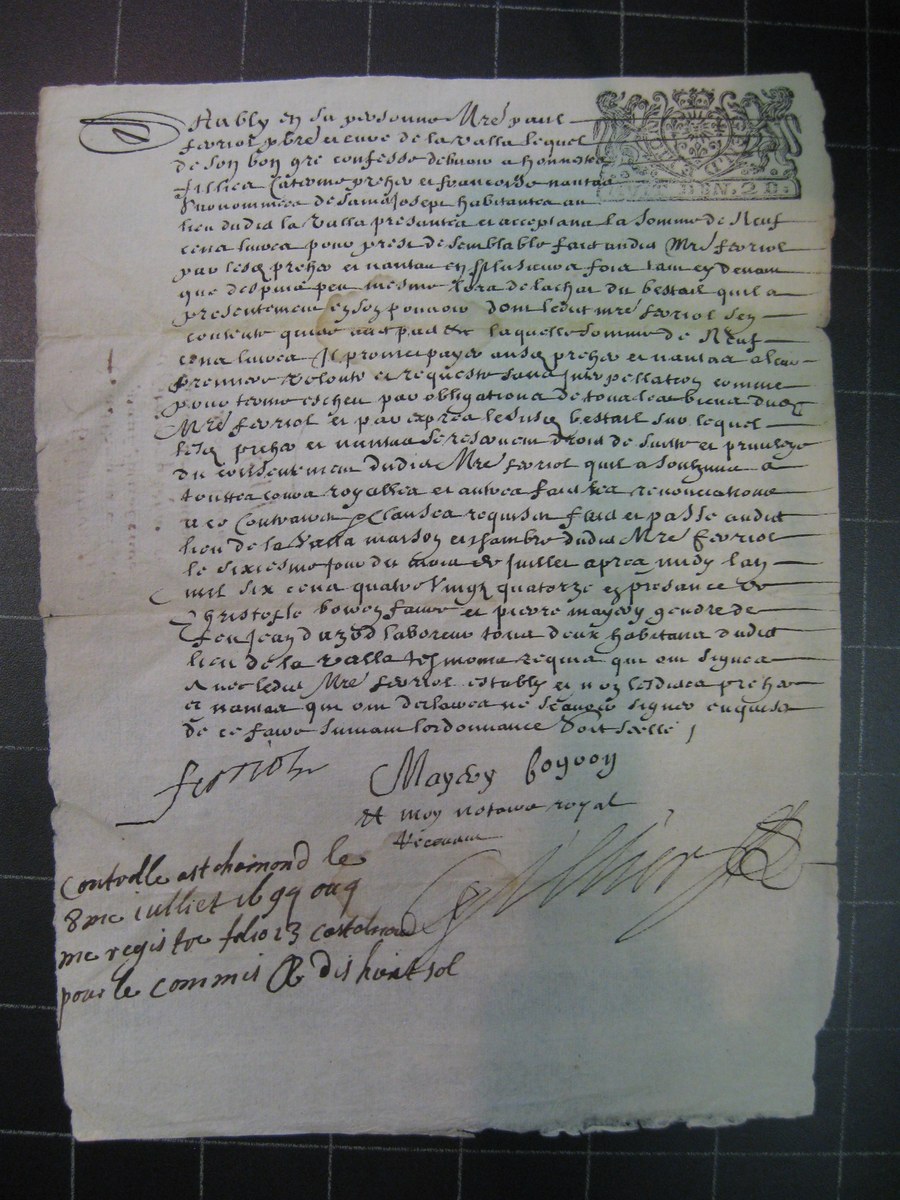 Estably en sa personne Mre paul
ferriol pbre et curé de la valla lequel
de son bon gre confesse debvoir a honnestes
fillies Caterine preher et francoise nantas
Surnommées de Sainct Joseph habitantes au
lieu dudit la Valla presantes et acceptans la Somme de Neuf
cens livres pour prest de semblable faict audit Mre ferriol
par lesd preher et nantas en plusieurs fois tant cy devant
que despuis peu mesme lors de lachat du bestail quil a
presentement en son pouvoir dont ledit mre ferriol sen
contente laquelle somme de Neuf
cens livres Il promet payer ausd preher et nantas a leur
premiere volonté et requeste sans Interpellation comme
pour terme escheu par obligations de tous les biens dud
Mre ferriol et par exprès le susd bestail sur lequel
lesd preher et nantas se reservent droit de suitte et privilege
du consentement dudit Mre ferriol quil a soubzmis a
touttes cours royalles et autres faict les renonciations
a ce Contraires Clauses requises faict et passé audit
lieu de la Valla maison et chambre dudit Mre ferriol
le sixiesme jour du mois de Juillet apres midy lan
mil six cens quatre vingt quatorze en presance de
Christofle et pierre mayery gendre de
feu Jean laboureur tous deux habitans dudit
lieu de la valla tesmoins requis qui ont signes
avec ledit Mre ferriol estably et non lesdites preher
et nantas qui ont declarees ne scavoir signer enquises
de ce faire suivant lordonnance Soit scellé
ferriol
Mayery
et moy notaire royal
recevant
Controlle a st chamond le
8me iulliet 1694 au 9
me registre folio 23
pour le commis dishuit sol
PETIT DEN. 2 S.